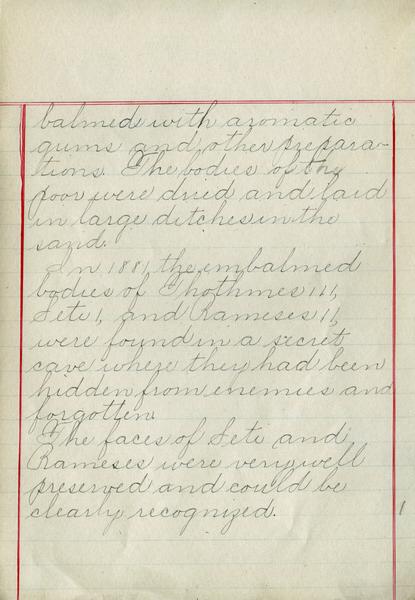 balmed with aromatic
gums and other prepara-
tions. The bodies of the
poor were dried and laid
in large ditches in the
sand.
In 1881, the embalmed
bodies of Thothmes III,
Seti I, and Rameses II,
were found in a secret
cave where they had been
hidden from enemies and
forgotten.
The faces of Seti and
Rameses were very well
preserved and could be
clearly recognized.